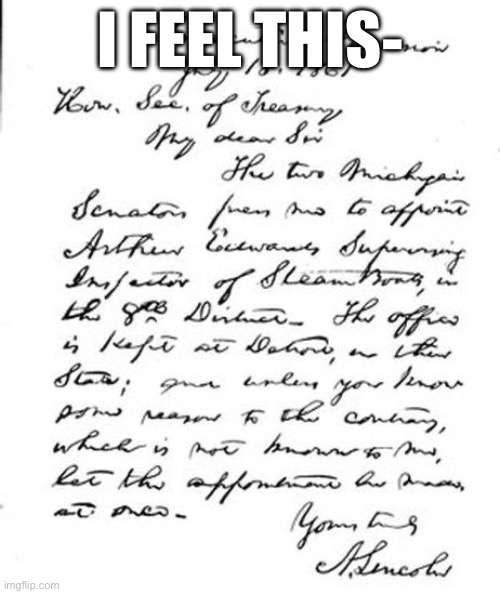 I FEEL THIS-
Hon. Sec. of Treasury
My dear Sir
The two Michigan
Senators press me to appoint
Arthur Edwards Supervising
Inspector of Steam Boats, in
the 8th District_ The office
is kept at Detroit, in their
State; and unless you know
some reason to the contrary,
which is not known to me,
let the appointment be made,
at once_
Yours truly
A. Lincoln
imgflip.com